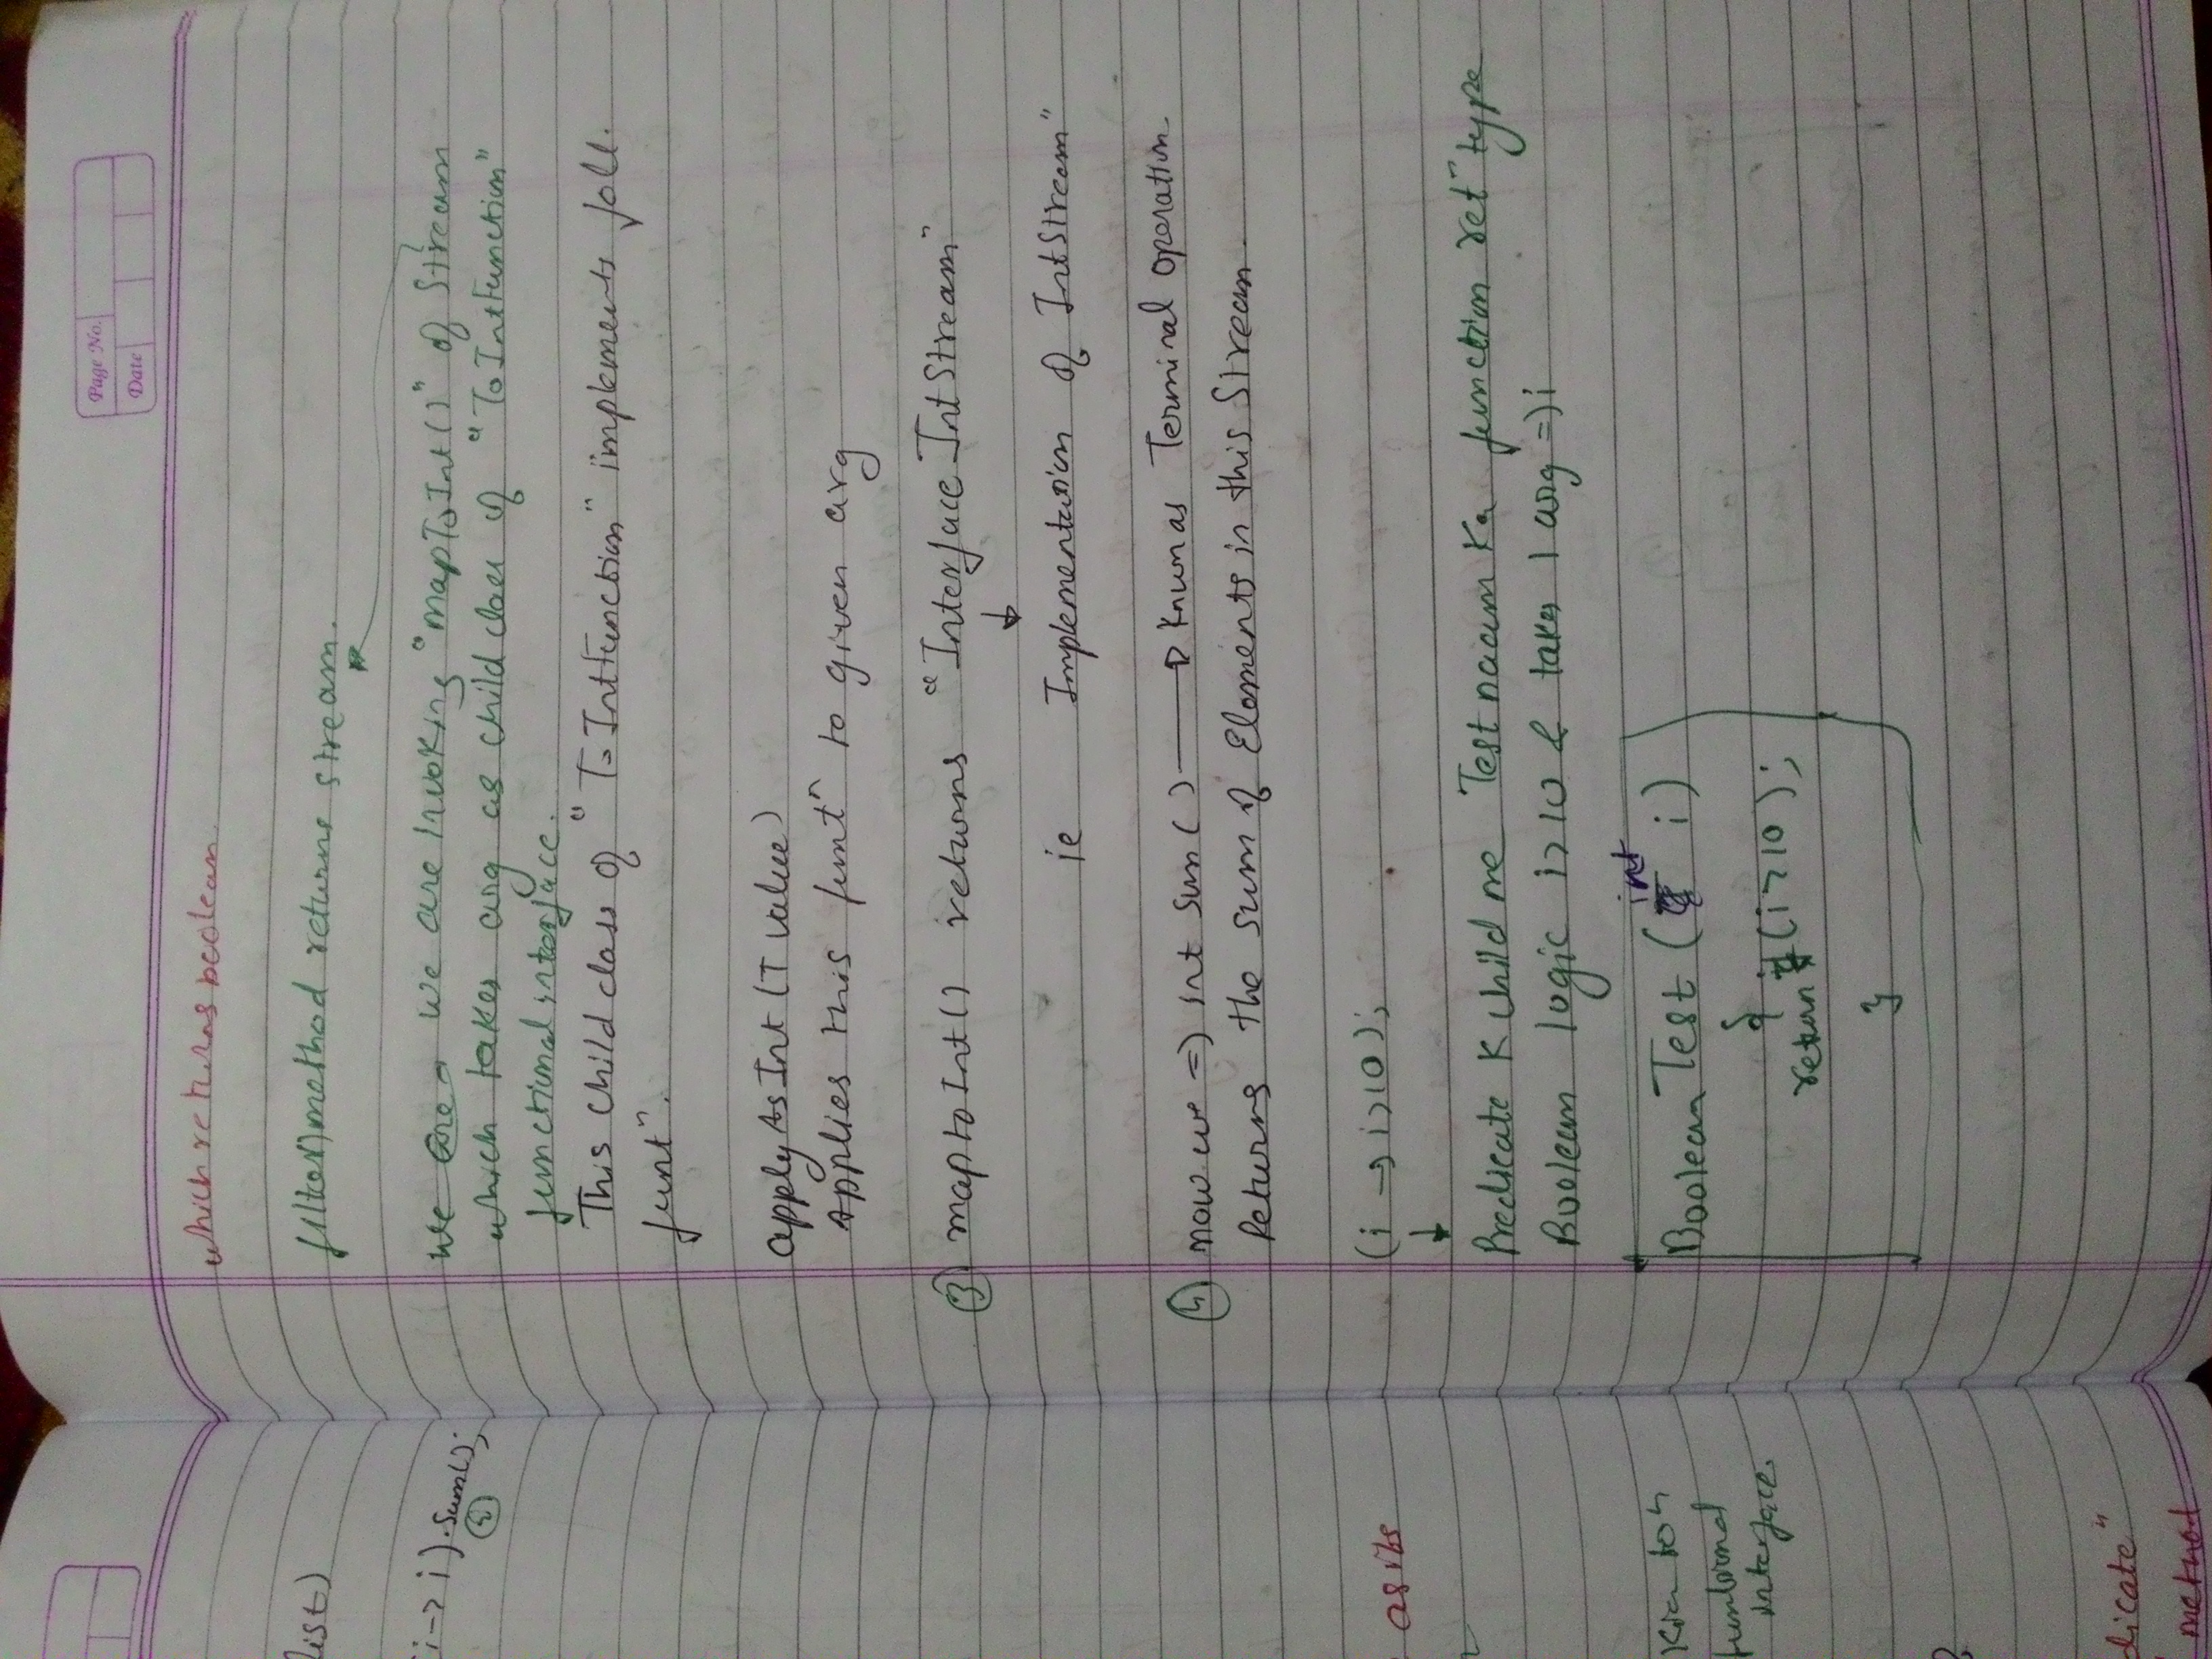 Page No.
Date
which returns boolean.
filter() method returns stream.
We are We are Invoking "mapToInt()" of Stream
which takes arg as child class of "ToIntFunction"
functional interface.
This child class of "ToIntFunction" implements foll.
funtⁿ.
applyAsInt (T value)
Applies this funtⁿ to given arg
③ maptoInt() returns "Interface IntStream"
↓
ie Implementation of IntStream"
④ now we => int sum() → Known as Terminal operation.
Returns the sum of Elements in this Stream.
(i → i>10);
↓
Predicate K child me Test naam Ka function retⁿ type
Boolean logic i>10 & takes 1 arg => i
int
Boolean Test ( i)
{
return (i>10);
}
list)
i-> i).sum();
as its
functional
interface.
dicate"
method